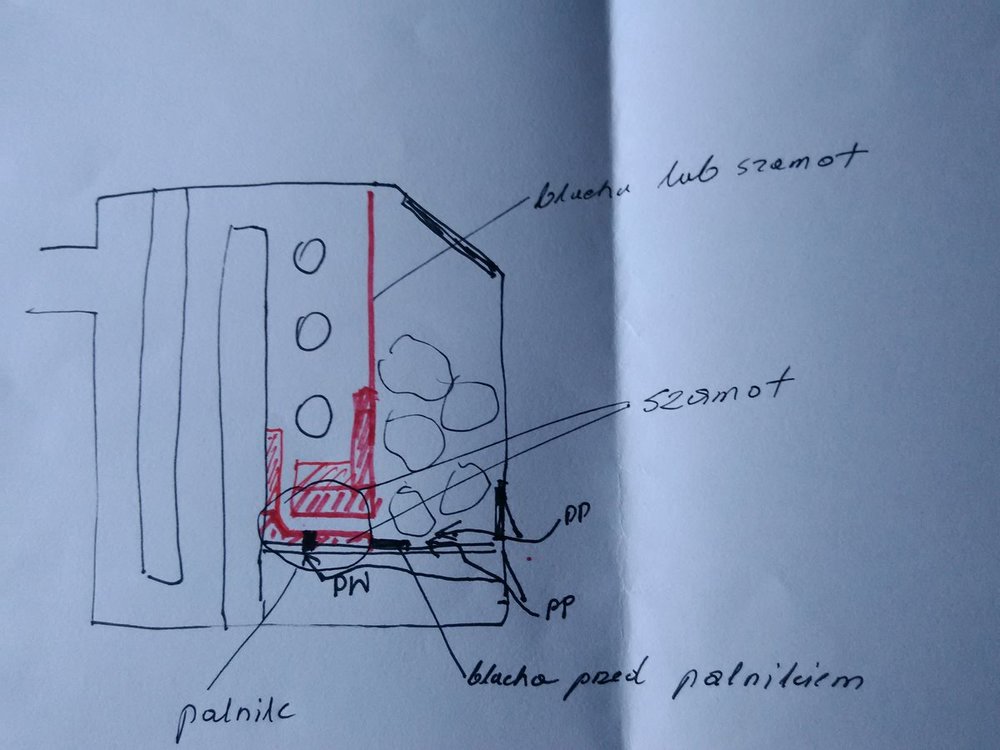 blacha lub szamot
szamot
PP
PW
PP
blacha przed palnikiem
palnik